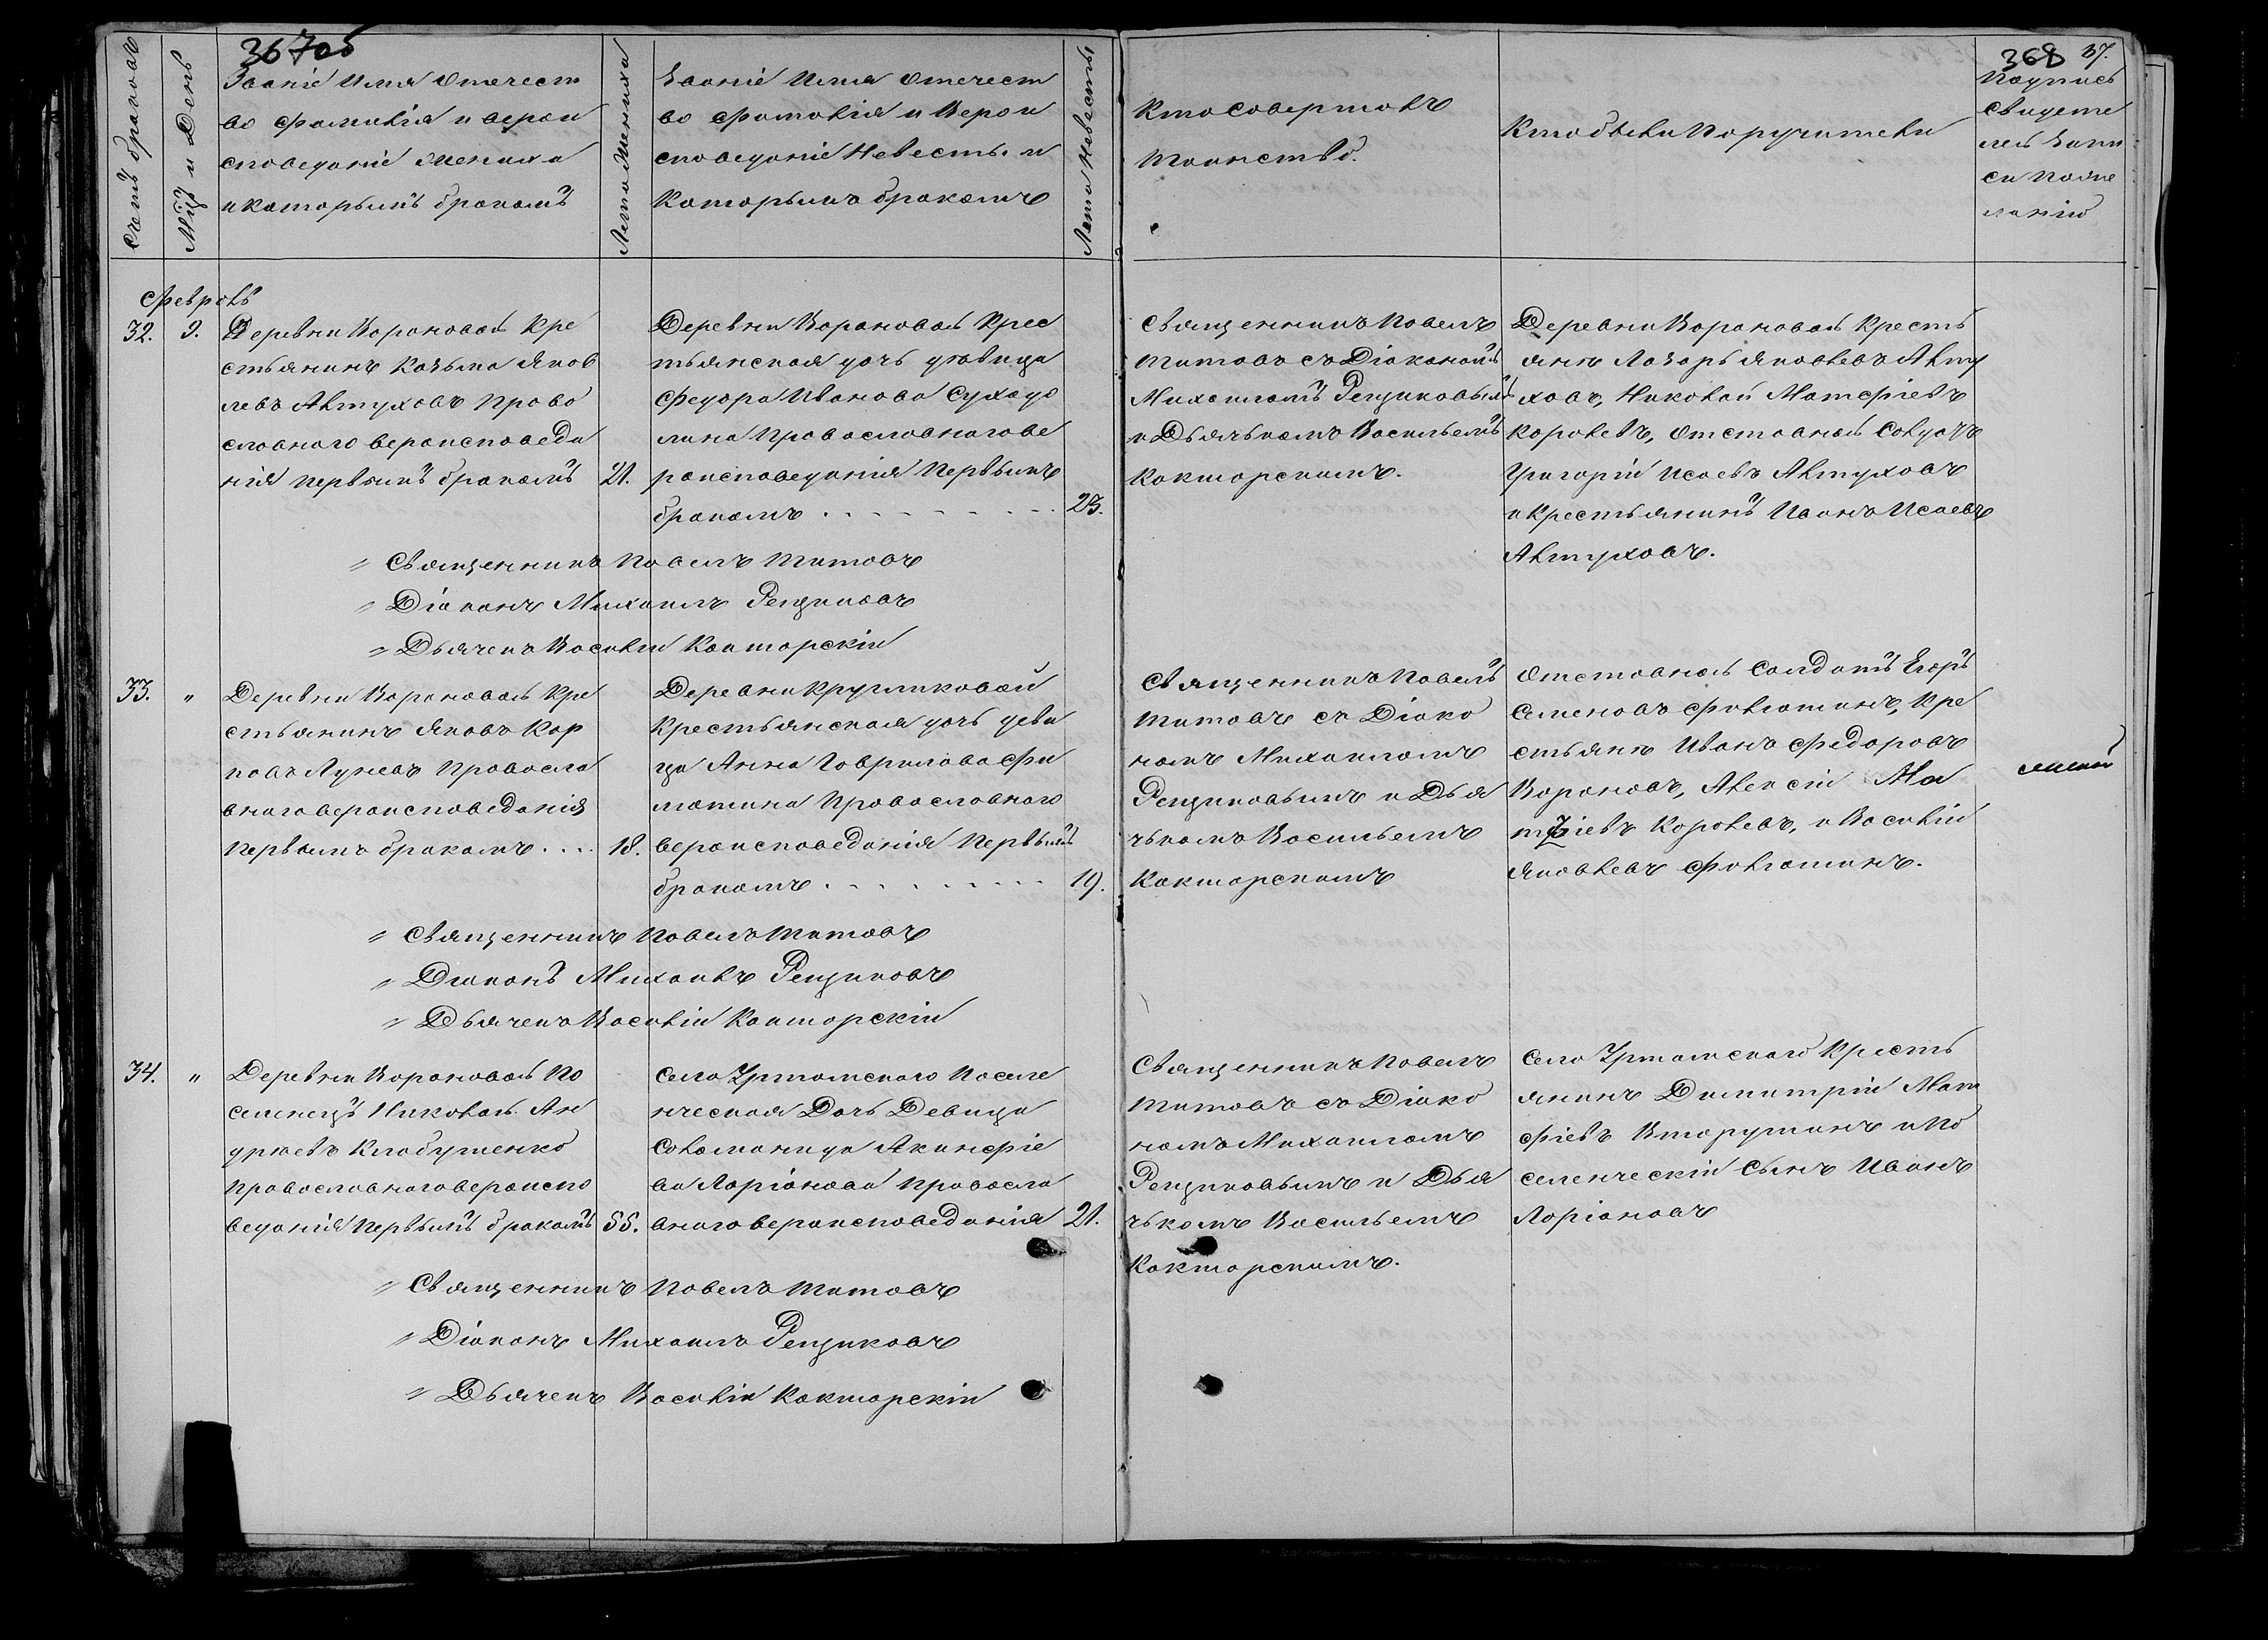 367об
368 37.
Счетъ браковъ
Мцъ и День
Званіе Имя Отечест
во фамилія и верои
споведаніе Жениха
и которымъ бракомъ
Лета Жениха
Званіе Имя Отечест
во фамилія и Верои
споведаніе Невесты и
Которымъ бракомъ
Лета Невесты
Кто совершалъ
Таинство.
Кто были Поручители
Подпись
свидете
лей Запи
си по же
ланію
Февраль
32. 9. Деревни Вороновой Кре
стьянинъ Козьма Яков
левъ Алтуховъ Право
славного вероисповеда
нія первымъ бракомъ 21.
Деревни Вороновой Крес
тьянская дочь девица
Федора Иванова Суходо
лина Православного ве
роисповеданія Первымъ
бракомъ 23.
Священникъ Павелъ
Титовъ съ Діакономъ
Михаиломъ Рещиковымъ
и Дьячькомъ Васильемъ
Кокшарскимъ.
Деревни Вороновой Кресть
яне Лазарь Яковлевъ Алту
ховъ, Николай Матфіевъ
Королевъ, Отставной Солдатъ
Григорій Исаевъ Алтуховъ
и Крестьянинъ Иванъ Исаевъ
Алтуховъ.
Священникъ Павелъ Титовъ
Діаконъ Михаилъ Рещиковъ
Дьячекъ Василій Кокшарскій
33. " Деревни Вороновой Кре
стьянинъ Яковъ Кар
повъ Луневъ Правосла
вного вероисповеданія
Первымъ бракомъ 18.
Деревни Кругликовой
Крестьянская дочь деви
ца Анна Гаврилова Фи
лютина Православного
вероисповеданія Первымъ
бракомъ 19.
Священникъ Павелъ
Титовъ съ Діако
номъ Михаиломъ
Рещиковымъ и Дья
чькомъ Васильемъ
Кокшарскимъ
Отставной Солдатъ Егоръ
Семеновъ Филютинъ, Кре
стьяне Иванъ Федоровъ
Вороновъ, Алексій Ма
тфіевъ Королевъ, и Василій
Яковлевъ Филютинъ.
Священникъ Павелъ Титовъ
Діаконъ Михаилъ Рещиковъ
Дьячекъ Василій Кокшарскій
34. " Деревни Вороновой По
селенецъ Николай Ан
дреевъ Клабушенко
православного вероиспо
веданія Первымъ бракомъ 55.
Села Уртамского Поселе
нческая Дочь Девица
Соломанида Акинфіе
ва Ларіонова Правосла
вного вероисповеданія 21.
Священникъ Павелъ
Титовъ съ Діако
номъ Михаиломъ
Рещиковымъ и Дья
чькомъ Васильемъ
Кокшарскимъ.
Села Уртамского Кресть
янинъ Димитрій Мат
фіевъ Вторушинъ и По
селенческій Сынъ Иванъ
Ларіоновъ
Священникъ Павелъ Титовъ
Діаконъ Михаилъ Рещиковъ
Дьячекъ Василій Кокшарскій